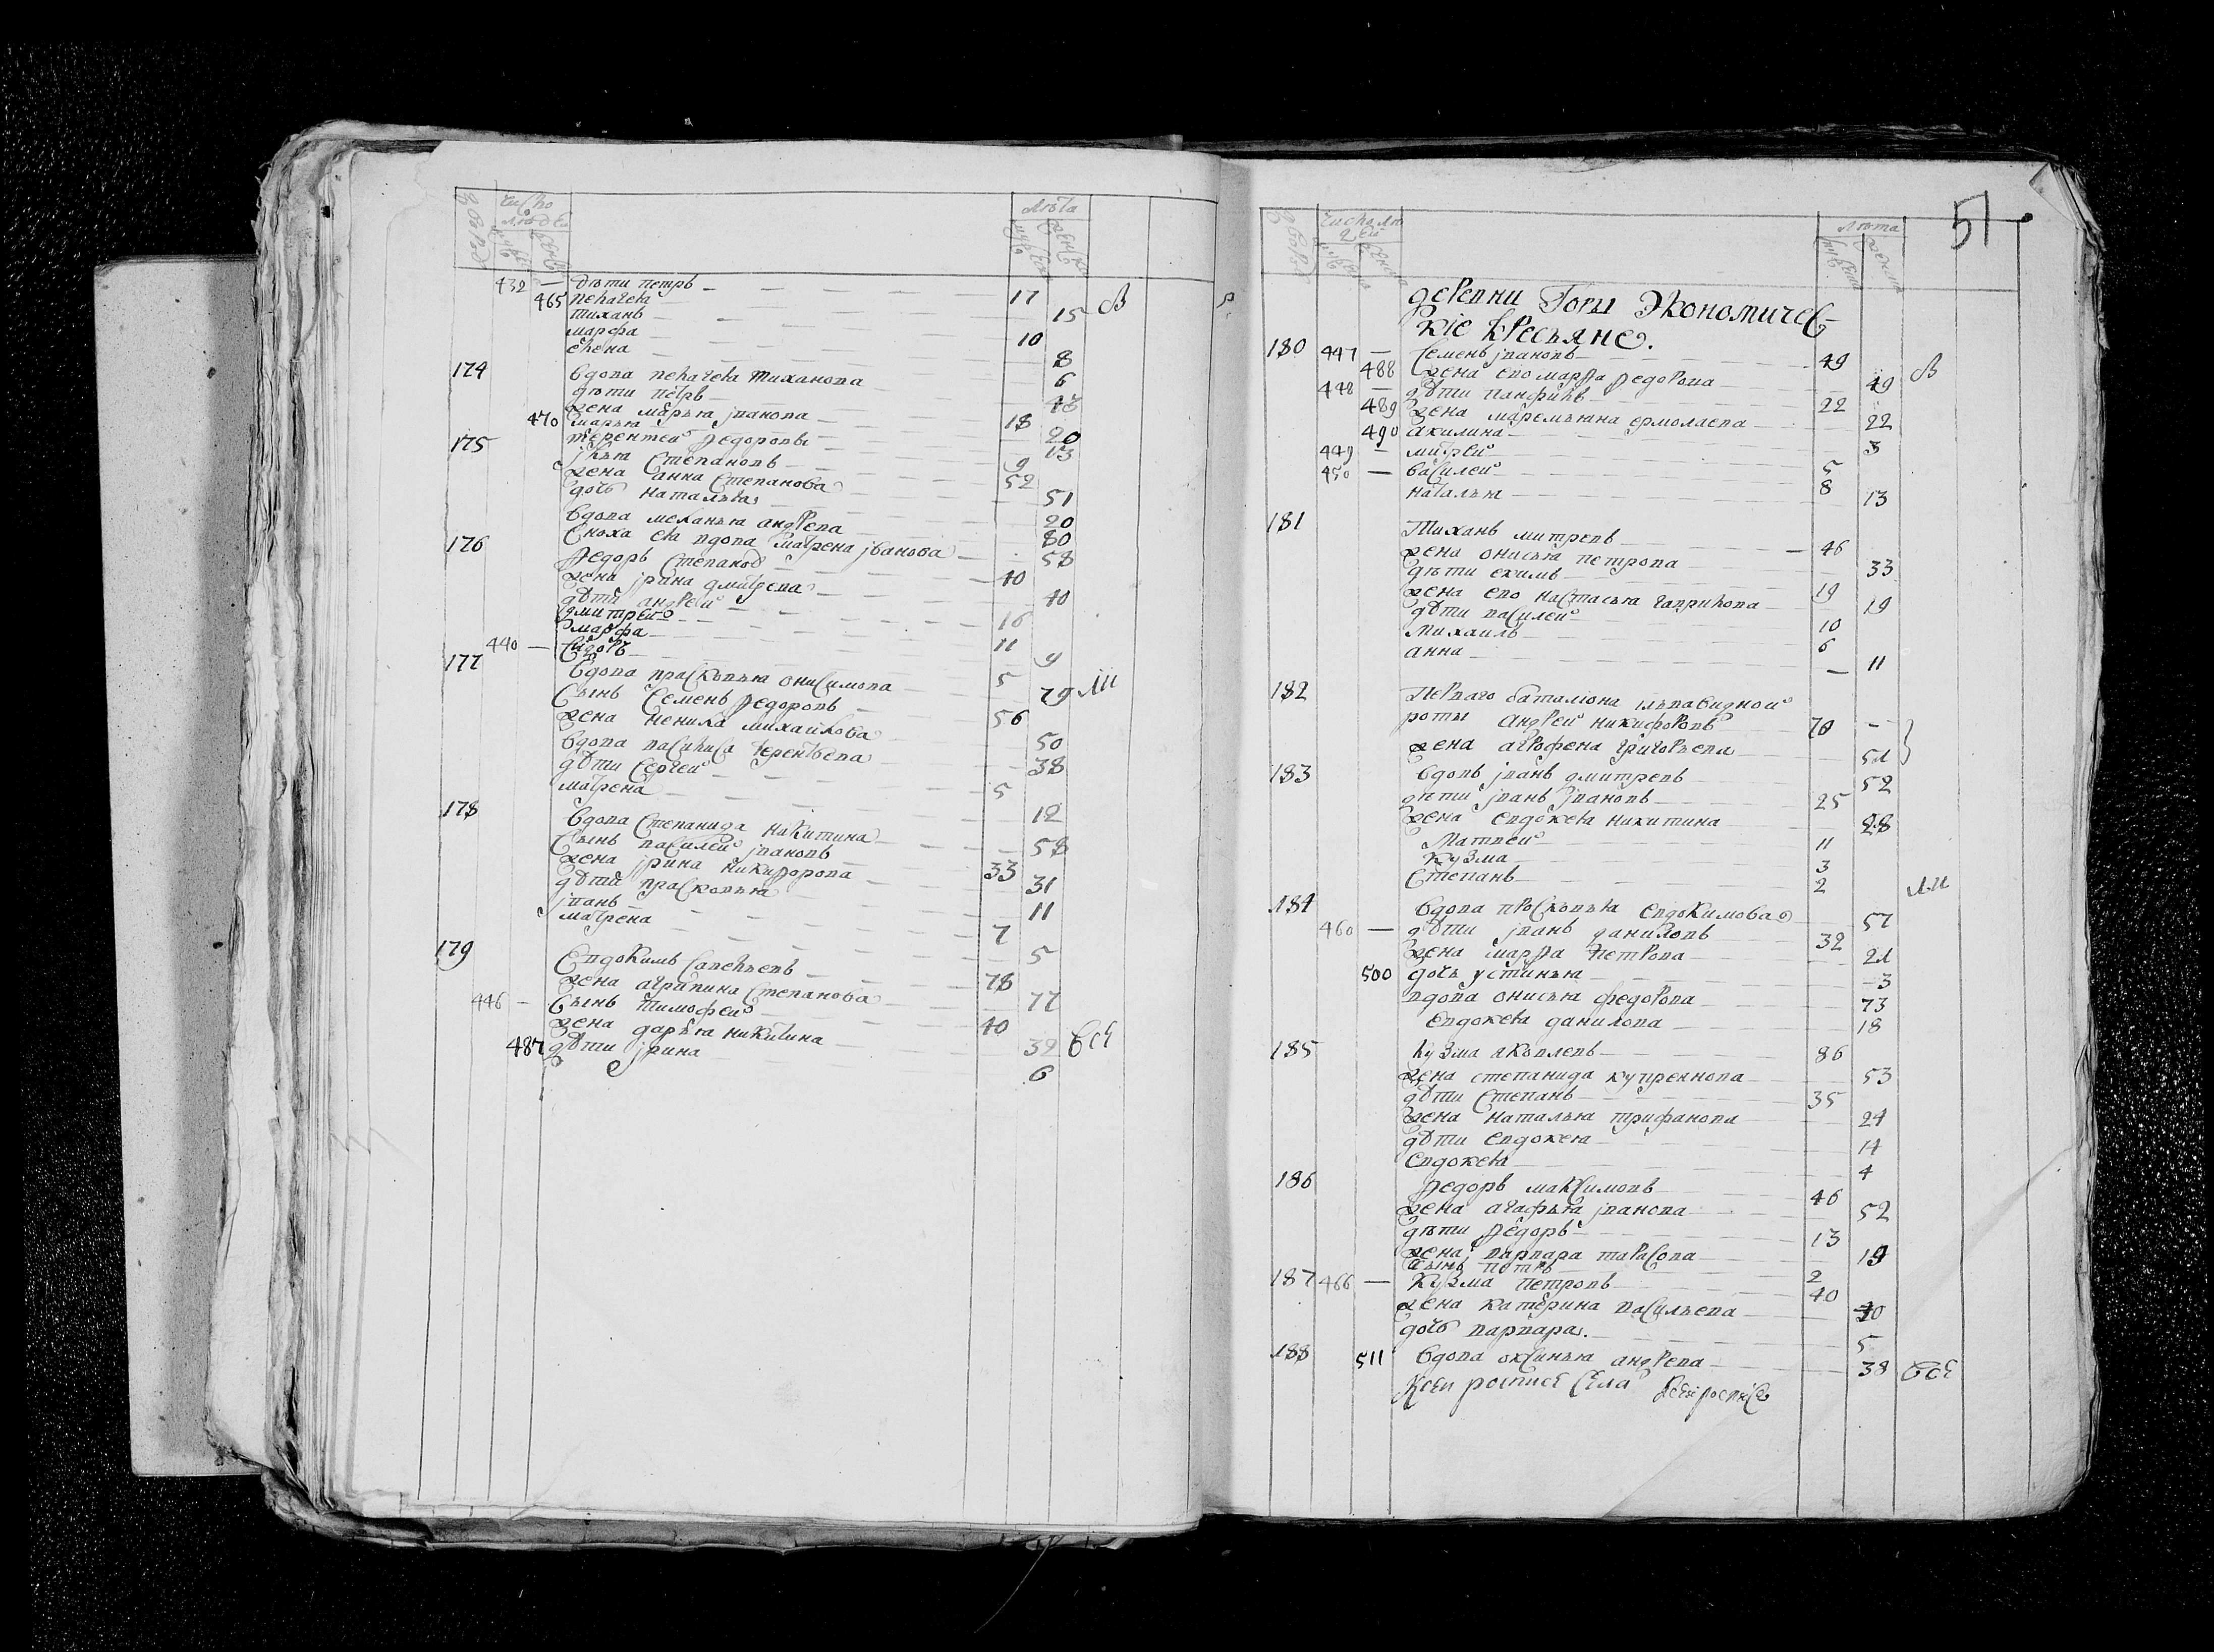 число
людей
лѣта
432 — дѣти петръ — 17
465 пелагея — 15
тиханъ — 10
марфа — 8
елена — 6
174 вдова пелагея тиханова
дѣти петръ — 18
жена марья іванова — 20
470 марья — 13
175 терентей федоровъ — 9
степановъ — 52
жена анна степанова — 51
дочь наталья — 20
вдова меланья андрева — 80
сноха ея вдова матрена іванова — 58
176 федоръ степановъ — 40
жена ірина дмитрева — 40
дѣти андрей — 16
дмитрей — 11
марфа — 9
440 — сидоръ — 5
177 вдова прасковья онисимова — 79
сынъ семенъ федоровъ — 56
жена михайлова — 50
вдова василиса терентьева — 38
дѣти сергей — 5
матрена — 12
178 вдова степанида никитина — 58
сынъ василей івановъ — 33
жена ірина никифорова — 31
дѣти прасковья — 11
іванъ — 7
матрена — 5
179 евдокимъ савельевъ — 78
жена агрипина степанова — 77
446 — сынъ тимофей — 40
жена дарья никитина — 39
487 дѣти ірина — 6
51
число лю
дей
лѣта
деревни Горы экономичес
кіе кресьяне.
180 447 — семенъ івановъ — 49
488 жена ево марфа федорова — 49
448 — дѣти панфилъ — 22
489 жена маремьяна ермолаева — 22
490 акилина — 3
449 — митрей — 5
450 — василей — 8
наталья — 13
181 Тиханъ митревъ — 46
жена онисья петрова — 33
дѣти екимъ — 19
жена ево настасья гаврилова — 19
дѣти василей — 10
михаилъ — 6
анна — 11
182 перваго баталіона
роты андрей никифоровъ 70 —
жена агрофена григорьева — 51
183 вдовъ іванъ дмитревъ — 52
дѣти іванъ івановъ — 25
жена евдокея никитина — 28
матвей — 11
кузма — 3
степанъ — 2
184 вдова просковья евдокимова — 57
460 — дѣти іванъ даниловъ — 32
жена марфа петрова — 21
500 дочь устинья — 3
вдова онисья федорова — 73
евдокея данилова — 18
185 кузма яковлевъ — 86
жена степанида купреянова — 53
дѣти степанъ — 35
жена наталья трифанова — 24
дѣти евдокея — 14
евдокея — 4
186 федоръ максимовъ — 46
жена агафья іванова — 52
дѣти федоръ — 13
жена варвара тарасова — 19
сынъ петръ — 2
187 466 — кузма петровъ — 40
жена катерина васильева — 40
дочь варвара. — 5
188 511 вдова оксинья андрева — 38